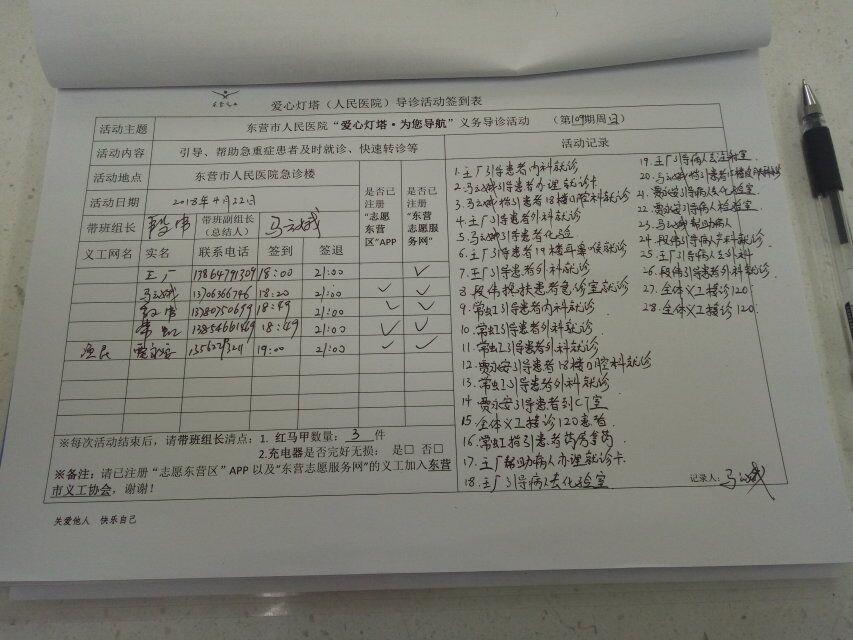 爱心灯塔（人民医院）导诊活动签到表
活动主题 东营市人民医院“爱心灯塔·为您导航”义务导诊活动 （第109期周日）
活动内容 引导、帮助急重症患者及时就诊、快速转诊等
活动地点 东营市人民医院急诊楼
活动日期 2018年4月22日
是否已注册“志愿东营区”APP
是否已注册“东营志愿服务网”
带班组长 段伟 带班副组长（总结人） 马云娥
义工网名 实名 联系电话 签到 签退
王广 13864791309 18:00 21:00 ✓
马云娥 13706366746 18:20 21:00 ✓ ✓
段伟 13780750699 18:49 21:00 ✓ ✓
常虹 13854661469 18:49 21:00 ✓ ✓
渔民 贾永安 19:00 21:00 ✓ ✓
※每次活动结束后，请带班组长清点：1. 红马甲数量：3 件
2.充电器是否完好无损： 是□ 否□
※备注：请已注册“志愿东营区”APP以及“东营志愿服务网”的义工加入东营
市义工协会，谢谢！
关爱他人 快乐自己
活动记录
1. 王广引导患者内科就诊
2. 马云娥引导患者办理就诊卡
3. 马云娥指引患者18楼口腔科就诊
4. 王广引导患者外科就诊
5. 马云娥引导患者化验
6. 王广引导患者19楼耳鼻喉就诊
7. 王广引导患者外科就诊
8. 段伟搀扶患者急诊室就诊
9. 常虹引导患者内科就诊
10. 常虹引导患者外科就诊
11. 常虹引导患者外科就诊
12. 贾永安引导患者18楼口腔科就诊
13. 常虹引导患者外科就诊
14. 贾永安引导患者到CT室
15. 全体义工接诊120患者
16. 常虹指引患者药房拿药
17. 王广帮助病人办理就诊卡
18. 王广引导病人去化验室
19. 王广引导病人去注射室
20. 马云娥指引患者就诊
21. 贾永安引导病人去化验室
22. 贾永安引导病人检验室
23. 马云娥帮助病人
24. 段伟引导病人产科就诊
25. 王广引导病人去外科
26. 段伟引导患者外科就诊
27. 全体义工接诊120.
28. 全体义工接诊120
记录人：马云娥